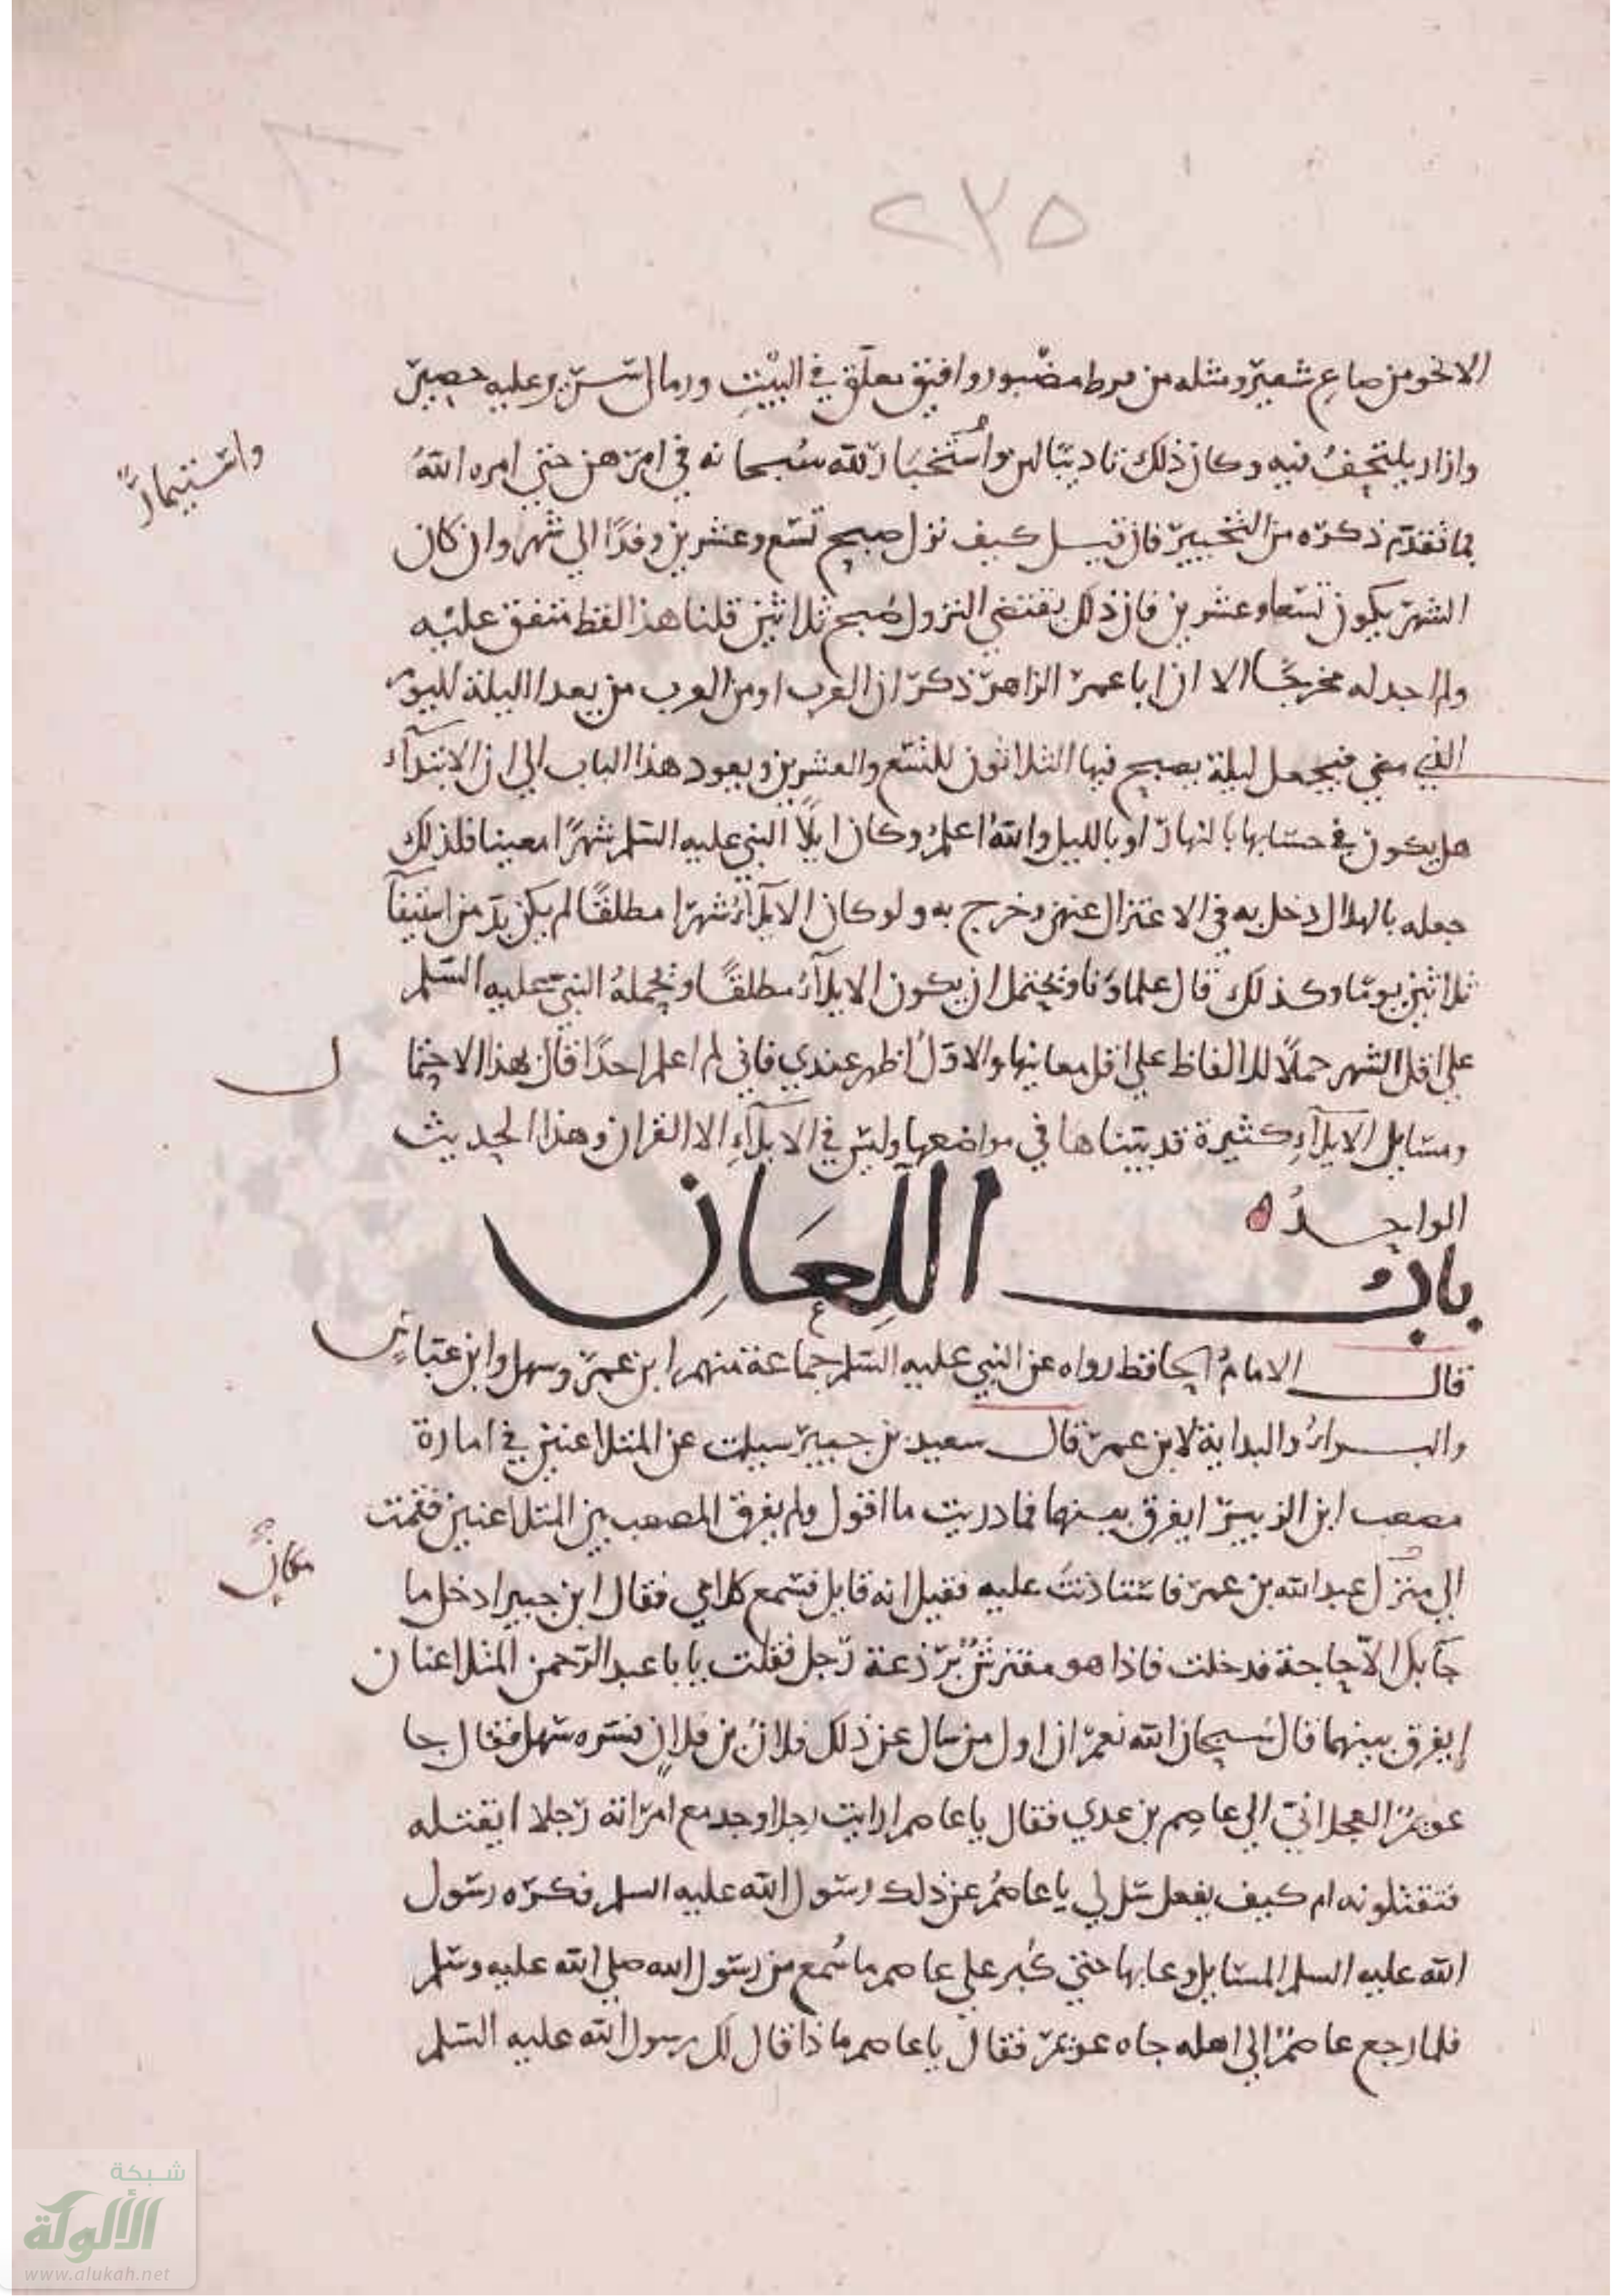 ٢٣٥
الا نحو من صاع شعير ومثله من قرط مصبور وافيق معلق في البيت ورمال سرير وعليه حصير
وازار يلتحف فيه وكان ذلك تاديبا لهن واستخبارا لله سبحانه في امرهن حتى امره الله
واستيمارًا
بما تقدم ذكره من التخيير فان قيل كيف نزل صبح تسع وعشرين وقد الى شهر وان كان
الشهر يكون تسعا وعشرين فان ذلك يقتضي النزول صبح ثلاثين قلنا هذا لفظ متفق عليه
ولم اجد له مخرجا الا ان ابا عمر الزاهد ذكر ان العرب او من العرب من يعد الليلة لليوم
الذي مضى فيجعل ليلة يصبح فيها الثلاثون للتسع والعشرين ويعود هذا الباب الى ان الابتدآء
هل يكون في حسابها بالنهار او بالليل والله اعلم وكان ايلا النبي عليه السلم شهرًا معينا فلذلك
جعله بالهلال دخل به في الاعتزال عنهن وخرج به ولو كان الايلآء شهرا مطلقًا لم يكن بد من استيفآ
ثلاثين يوما وكذلك قال علماونا ويحتمل ان يكون الايلآء مطلقًا ويحمله النبي عليه السلم
على اقل الشهر حملًا للالفاظ على اقل معانيها والاول اظهر عندي فاني لم اعلم احدًا قال بهذا الاحتما
ل
ومسايل الايلآء كثيرة قد بيناها في مواضعها وليس في الايلآء الا القران وهذا الحديث
الواحد ه
باب اللِعَانِ
قال الامام الحافظ رواه عن النبي عليه السلم جماعة منهم ابن عمر وسهل وابن عباس
والبراء والبداية لابن عمر قال سعيد بن جبير سيلت عن المتلاعنين في امارة
مصعب ابن الزبير ايفرق بينهما فما دريت ما اقول ولم يفرق المصعب بين المتلاعنين فقمت
مكاني
الى منزل عبد الله بن عمر فاستاذنت عليه فقيل انه قايل فسمع كلامي فقال ابن جبير ادخل ما
جآ بك الا حاجة فدخلت فاذا هو مفترش برذعة رحل فقلت يابا عبد الرحمن المتلاعنان
ايفرق بينهما قال سبحان الله نعم ان اول من سال عن ذلك فلان بن فلان فسره سهل فقال جا
عويمر العجلاني الى عاصم بن عدي فقال يا عاصم ارايت رجلا وجد مع امراته رجلا ايقتله
فتقتلونه ام كيف يفعل سل لي يا عاصم عن ذلك رسول الله عليه السلم فكره رسول
الله عليه السلم المسايل وعابها حتى كبر على عاصم ما سمع من رسول الله صلى الله عليه وسلم
فلما رجع عاصم الى اهله جاه عويمر فقال يا عاصم ماذا قال لك رسول الله عليه السلم
شبكة
الألوكة
www.alukah.net